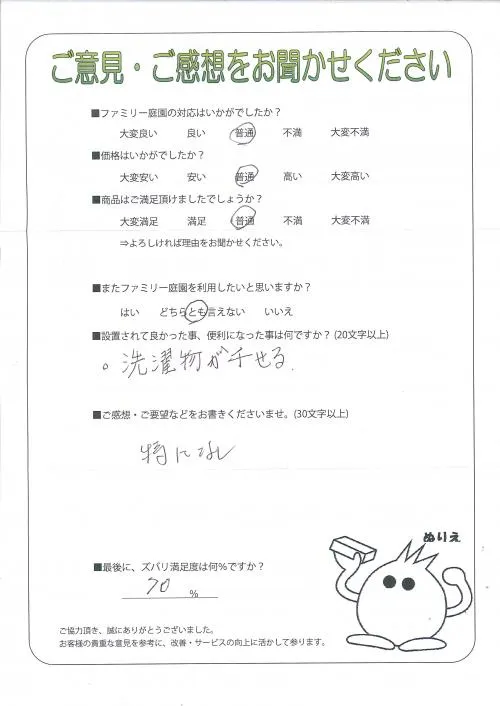 ご意見・ご感想をお聞かせください
■ファミリー庭園の対応はいかがでしたか？
大変良い　良い　普通　不満　大変不満
■価格はいかがでしたか？
大変安い　安い　普通　高い　大変高い
■商品はご満足頂けましたでしょうか？
大変満足　満足　普通　不満　大変不満
⇒よろしければ理由をお聞かせください。
■またファミリー庭園を利用したいと思いますか？
はい　どちらとも言えない　いいえ
■設置されて良かった事、便利になった事は何ですか？(20文字以上)
。洗濯物が干せる.
■ご感想・ご要望などをお書きくださいませ。(30文字以上)
特になし
ぬりえ
■最後に、ズバリ満足度は何%ですか？
70 %
ご協力頂き、誠にありがとうございました。
お客様の貴重な意見を参考に、改善・サービスの向上に活かして参ります。